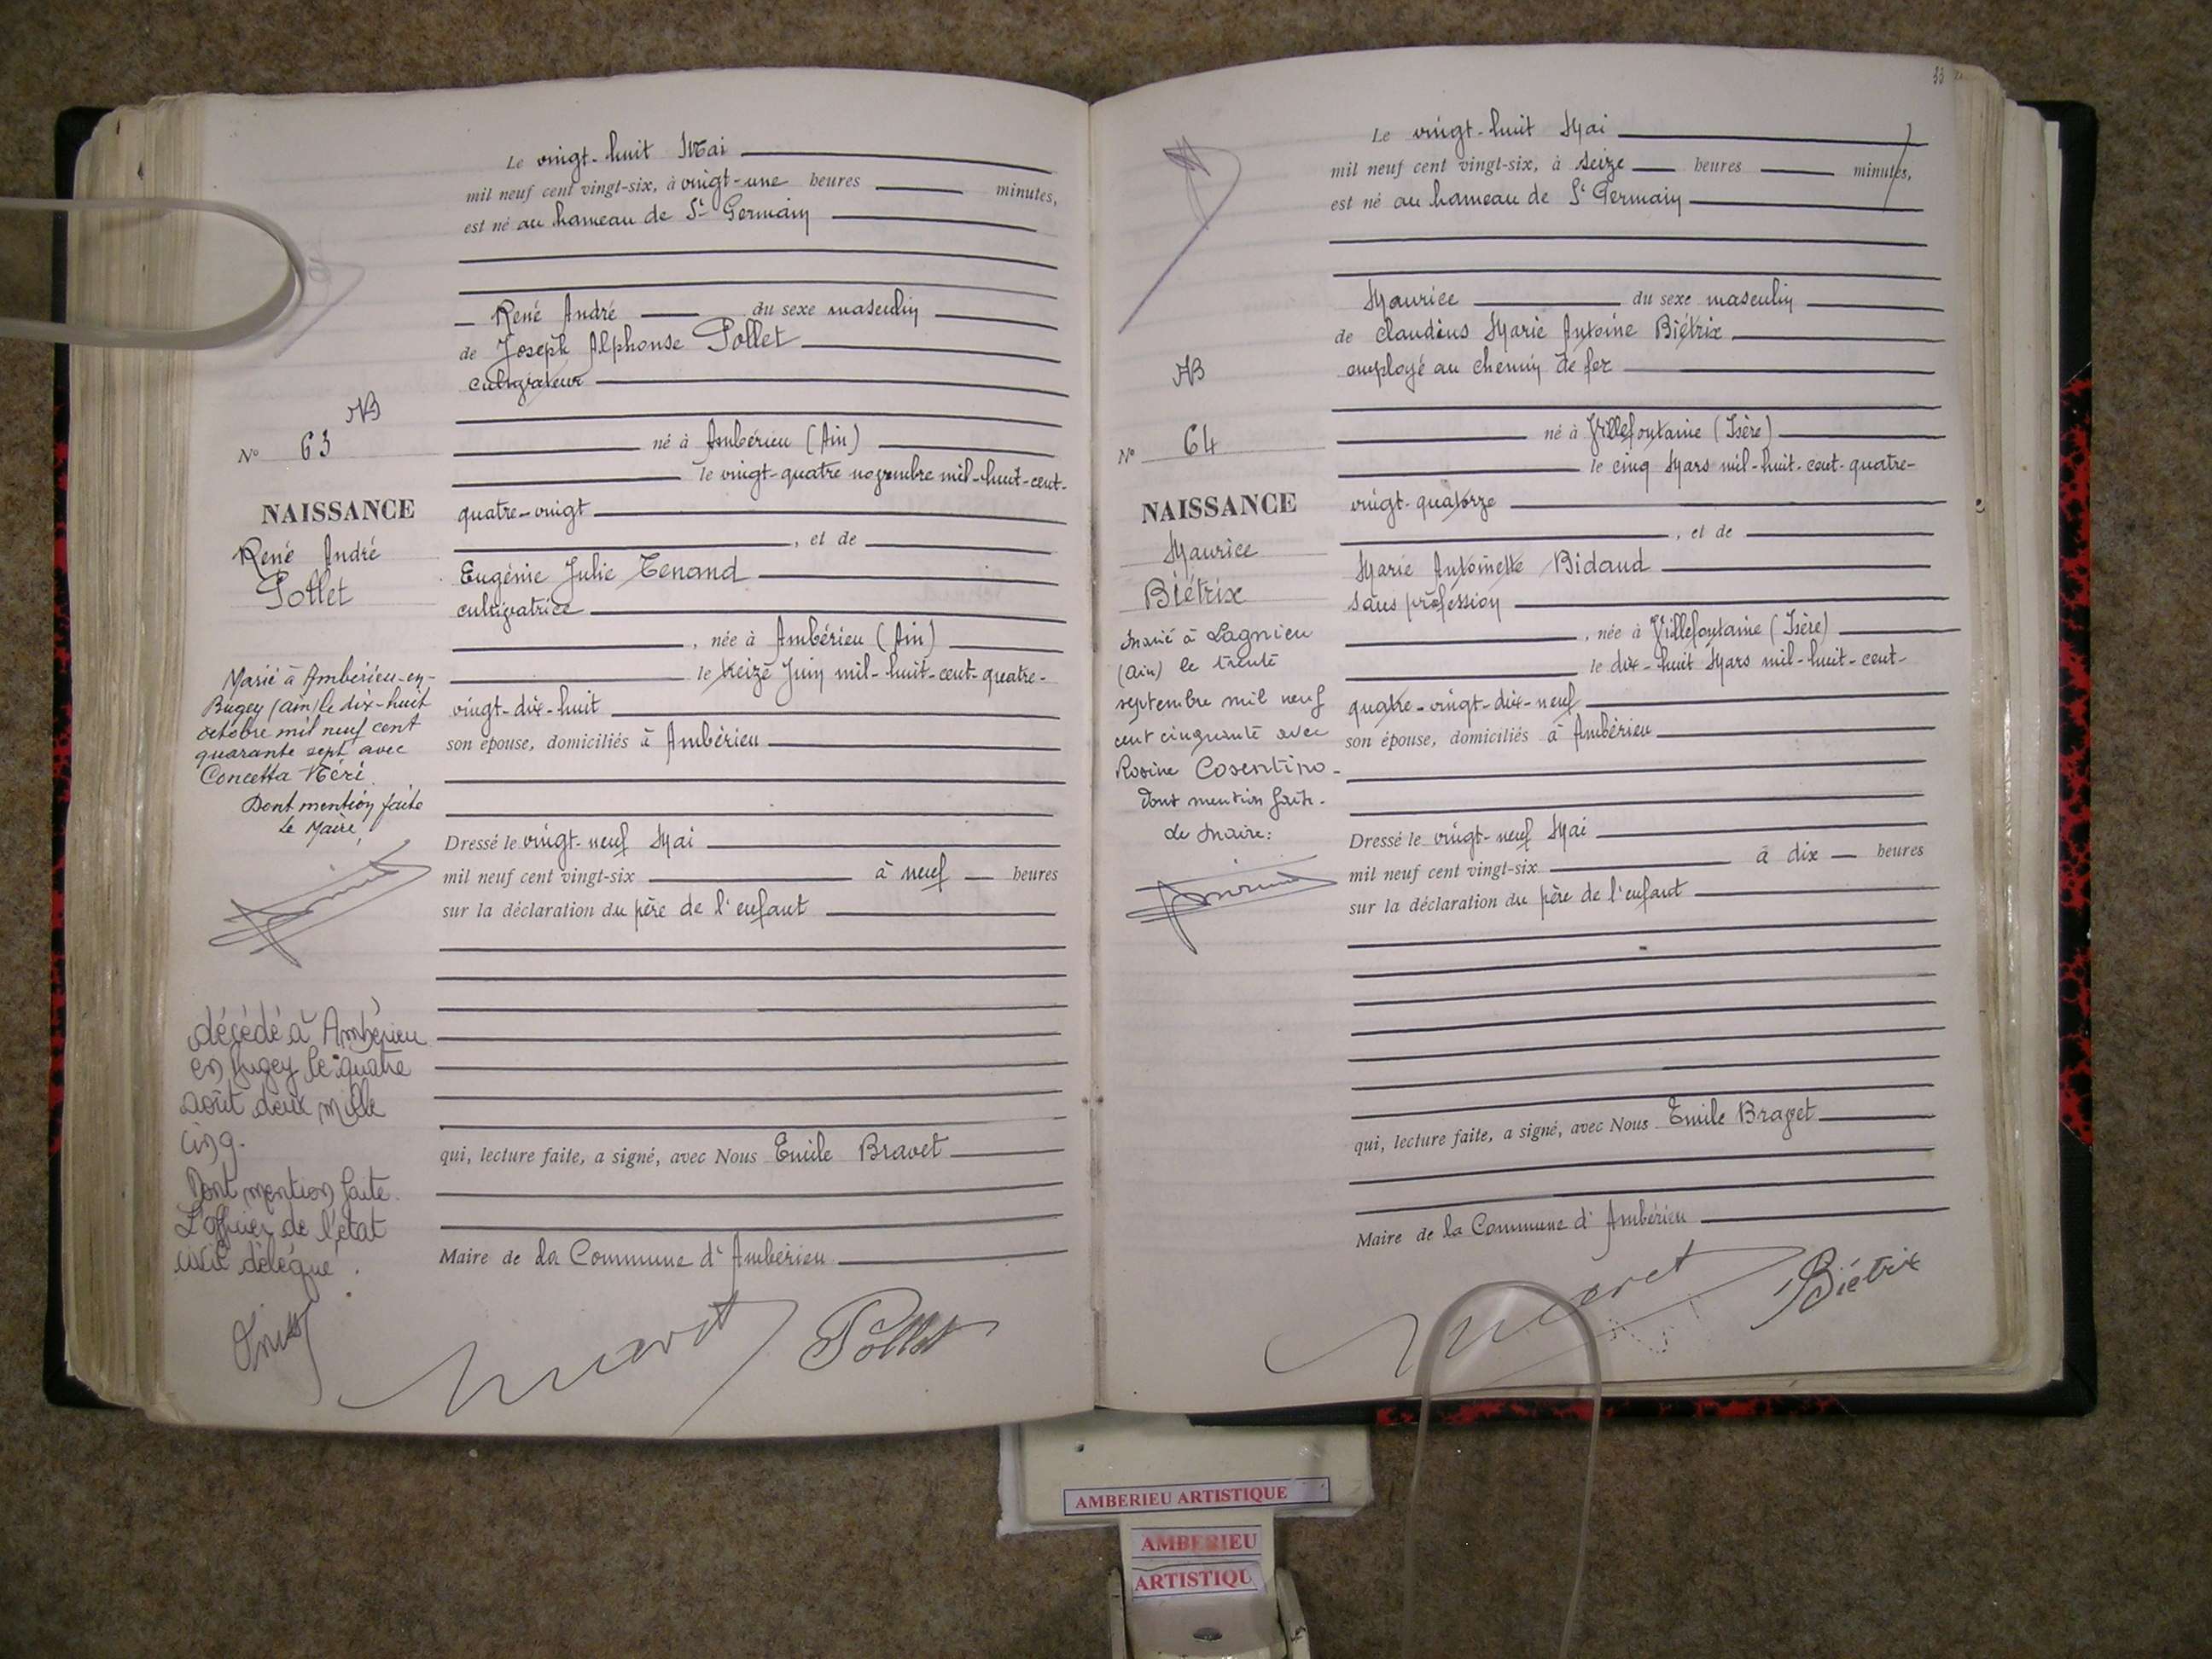 Le vingt-huit Mai
mil neuf cent vingt-six, à vingt-une heures minutes,
est né au hameau de St Germain
René André du sexe masculin
de Joseph Alphonse Pollet
cultivateur
né à Ambérieu (Ain)
le vingt-quatre novembre mil-huit-cent-
quatre-vingt
, et de
Eugénie Julie Tenand
cultivatrice
, née à Ambérieu (Ain)
le treize Juin mil-huit-cent-quatre-
vingt-dix-huit
son épouse, domiciliés à Ambérieu
Dressé le vingt-neuf Mai
mil neuf cent vingt-six à neuf heures
sur la déclaration du père de l'enfant
qui, lecture faite, a signé, avec Nous Emile Bravet
Maire de la Commune d'Ambérieu
Pollet
AB
N° 63
NAISSANCE
René André
Pollet
Marié à Ambérieu-en-
Bugey (ain) le dix-huit
octobre mil neuf cent
quarante sept avec
Concetta Néri.
Dont mention faite
Le Maire,
décédé à Ambérieu
en Bugey le quatre
août deux mille
cinq.
Dont mention faite.
L'officier de l'état
civil délégué.
33
Le vingt-huit Mai
mil neuf cent vingt-six, à seize heures minutes,
est né au hameau de St Germain
Maurice du sexe masculin
de Claudius Marie Antoine Biétrix
employé au chemin de fer
né à Villefontaine (Isère)
le cinq Mars mil-huit-cent-quatre-
vingt-quatorze
, et de
Marie Antoinette Bidaud
sans profession
, née à Villefontaine (Isère)
le dix-huit Mars mil-huit-cent-
quatre-vingt-dix-neuf
son épouse, domiciliés à Ambérieu
Dressé le vingt-neuf Mai
mil neuf cent vingt-six à dix heures
sur la déclaration du père de l'enfant
qui, lecture faite, a signé, avec Nous Emile Bravet
Maire de la Commune d'Ambérieu
Biétrix
AB
N° 64
NAISSANCE
Maurice
Biétrix
Marié à Lagnieu
(Ain) le trente
septembre mil neuf
cent cinquante avec
Rosine Cosentino-
Dont mention faite.
Le Maire:
AMBERIEU ARTISTIQUE
AMBERIEU
ARTISTIQU